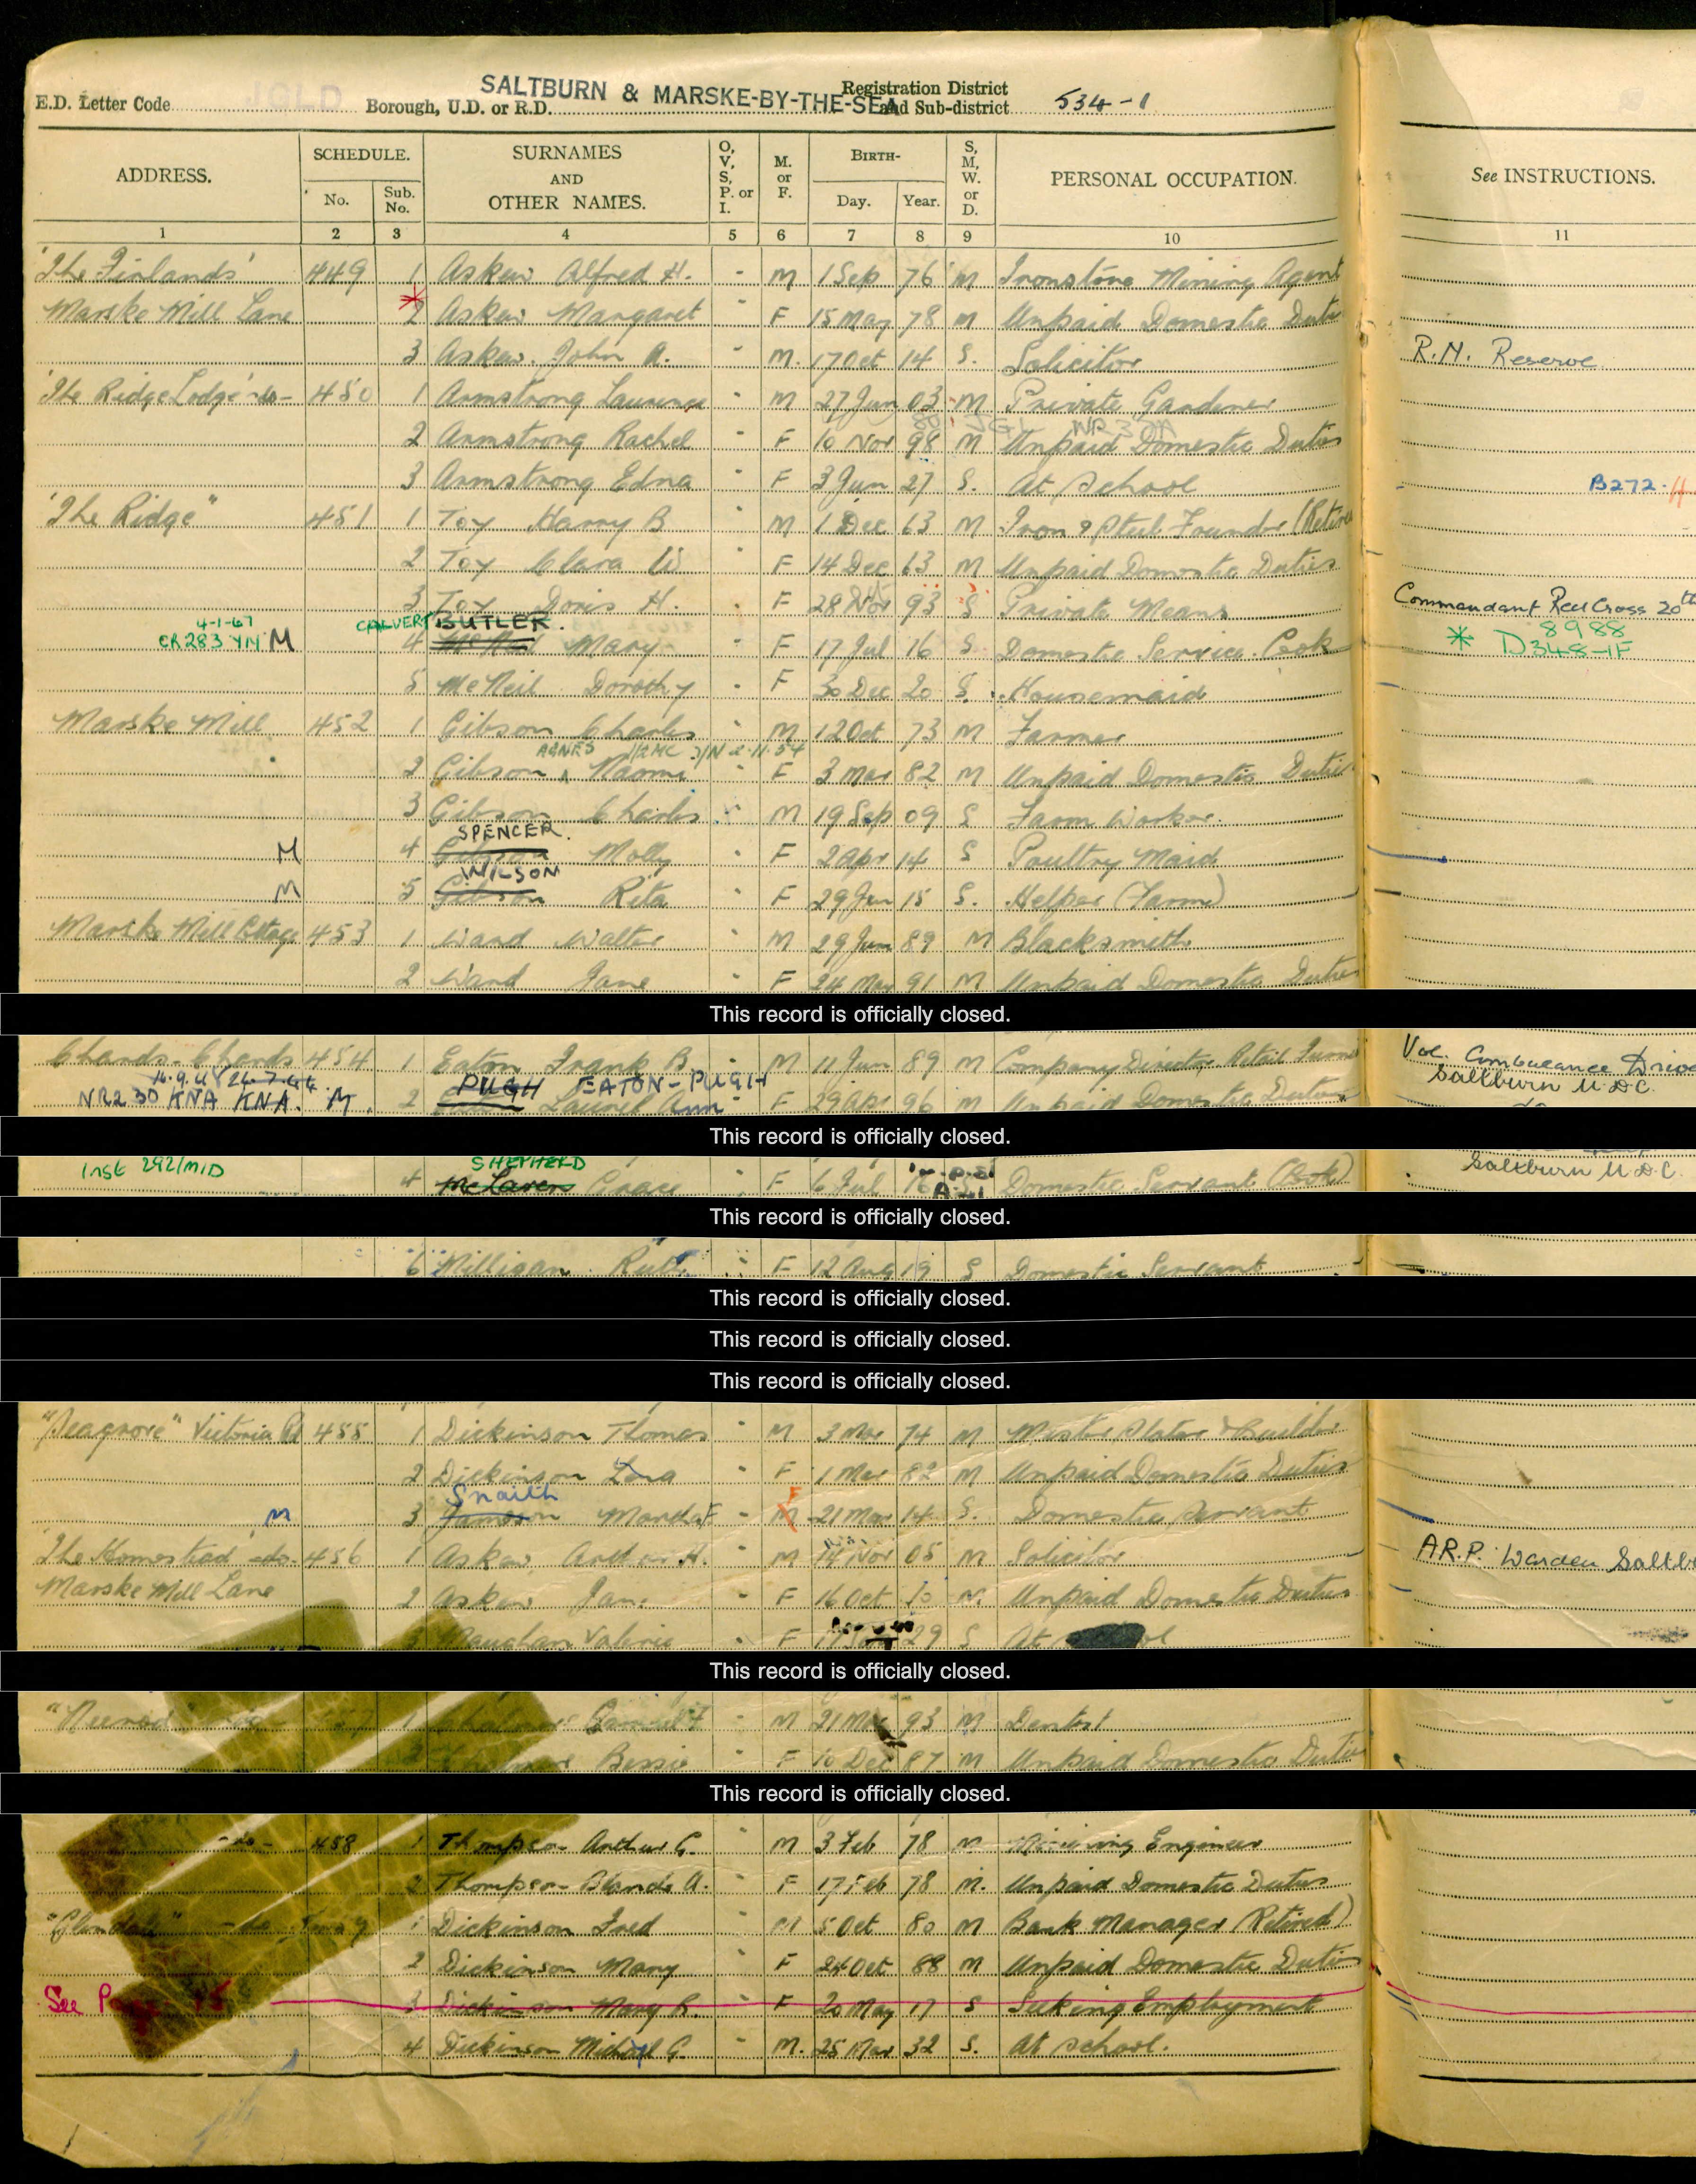 JGLD
SALTBURN & MARSKE-BY-THE-SEA
E.D. Letter Code
Borough, U.D. or R.D.
Registration District and Sub-district 534-1
ADDRESS. SCHEDULE. SURNAMES AND OTHER NAMES. O, V, S, P. or I. M. or F. BIRTH- S, M, W. or D. PERSONAL OCCUPATION. See INSTRUCTIONS.
No. Sub. No. Day. Year.
1 2 3 4 5 6 7 8 9 10 11
'The Finlands' 449 1 Askew Alfred H. - M 1 Sep 76 M Ironstone Mining Agent
Marske Mill Lane 2 Askew Margaret - F 15 May 78 M Unpaid Domestic Duties
3 Askew John A. - M. 17 Oct 14 S. Solicitor R.N. Reserve
'The Ridge Lodge' -do- 450 1 Armstrong Laurence - M 27 Jun 03 M Private Gardener
2 Armstrong Rachel - F 10 Nov 98 M Unpaid Domestic Duties
3 Armstrong Edna - F 3 Jun 27 S. At School B272.
'The Ridge" 451 1 Toy Harry B - M 1 Dec 63 M Iron & Steel Founder (Retire
2 Toy Clara W - F 14 Dec 63 M Unpaid Domestic Duties
3 Toy Doris H. - F 28 Nov 93 S Private Means Commandant Red Cross 20th
4-1-67 CALVERT BUTLER.
CR283 YN M 4 Mary - F 17 Jul 16 S Domestic Service Cook * D 8988 348-1F
5 McNeil Dorothy - F 30 Dec 20 S Housemaid
Marske Mill 452 1 Gibson Charles - M 12 Oct 73 M Farmer
AGNES
2 Gibson Naomi - F 3 Mar 82 M Unpaid Domestic Duties
3 Gibson Charles - M 19 Sep 09 S Farm Worker.
SPENCER.
M 4 Gibson Molly - F 2 Apr 14 S Poultry Maid
WILSON
M 5 Gibson Rita - F 29 Jun 15 S. Helper (Farm)
Marske Mill Cottage 453 1 Ward Walter - M 29 Jun 89 M Blacksmith
2 Ward Jane - F 24 Mar 91 M Unpaid Domestic Duties
This record is officially closed.
Chards-Chards 454 1 Eaton Frank B - M 11 Jun 89 M Company Director, Retail Vol. Ambulance Drive
PUGH EATON-PUGH Saltburn U.D.C.
NR230 KNA KNA. M. 2 Eaton Laurel Ann F 29 Apr 96 M Unpaid Domestic Duties
This record is officially closed.
Inst 292/MID SHEPHERD Saltburn U.D.C.
4 McLaren Grace - F 6 Jul 16 Domestic Servant (Cook)
This record is officially closed.
6 Milligan Ruth - F 12 Aug 19 S Domestic Servant
This record is officially closed.
This record is officially closed.
This record is officially closed.
"Seagrove" Victoria Rd 455 1 Dickinson Thomas - M 3 Mar 74 M Master Slater & Builder
2 Dickinson Lena - F 1 Mar 82 M Unpaid Domestic Duties
Snaith F
M 3 Jameson - M 21 Mar 14 S. Domestic Servant
'The Homestead' -do- 456 1 Askew Arthur H. - M 14 Nov 05 M Solicitor A.R.P. Warden Saltb
Marske Mill Lane 2 Askew Jane - F 16 Oct 10 M. Unpaid Domestic Duties
3 Vaughan Valerie - F 29 S At
This record is officially closed.
457 1 - M 21 93 M Dentist
2 Bessie - F 10 Dec 87 M Unpaid Domestic Duties
This record is officially closed.
-do- 458 1 Thompson Arthur G. - M 3 Feb 78 M Mining Engineer
2 Thompson Blanche A. - F 17 Feb 78 M. Unpaid Domestic Duties
"Glendale" -do- 1 Dickinson Fred - M 5 Oct 80 M Bank Manager (Retired)
2 Dickinson Mary - F 24 Oct 88 M Unpaid Domestic Duties
See Page 15 3 Dickinson Mary R. - F 20 May 17 S Seeking Employment
4 Dickinson Michael G. - M. 25 Mar 32 S. At School.